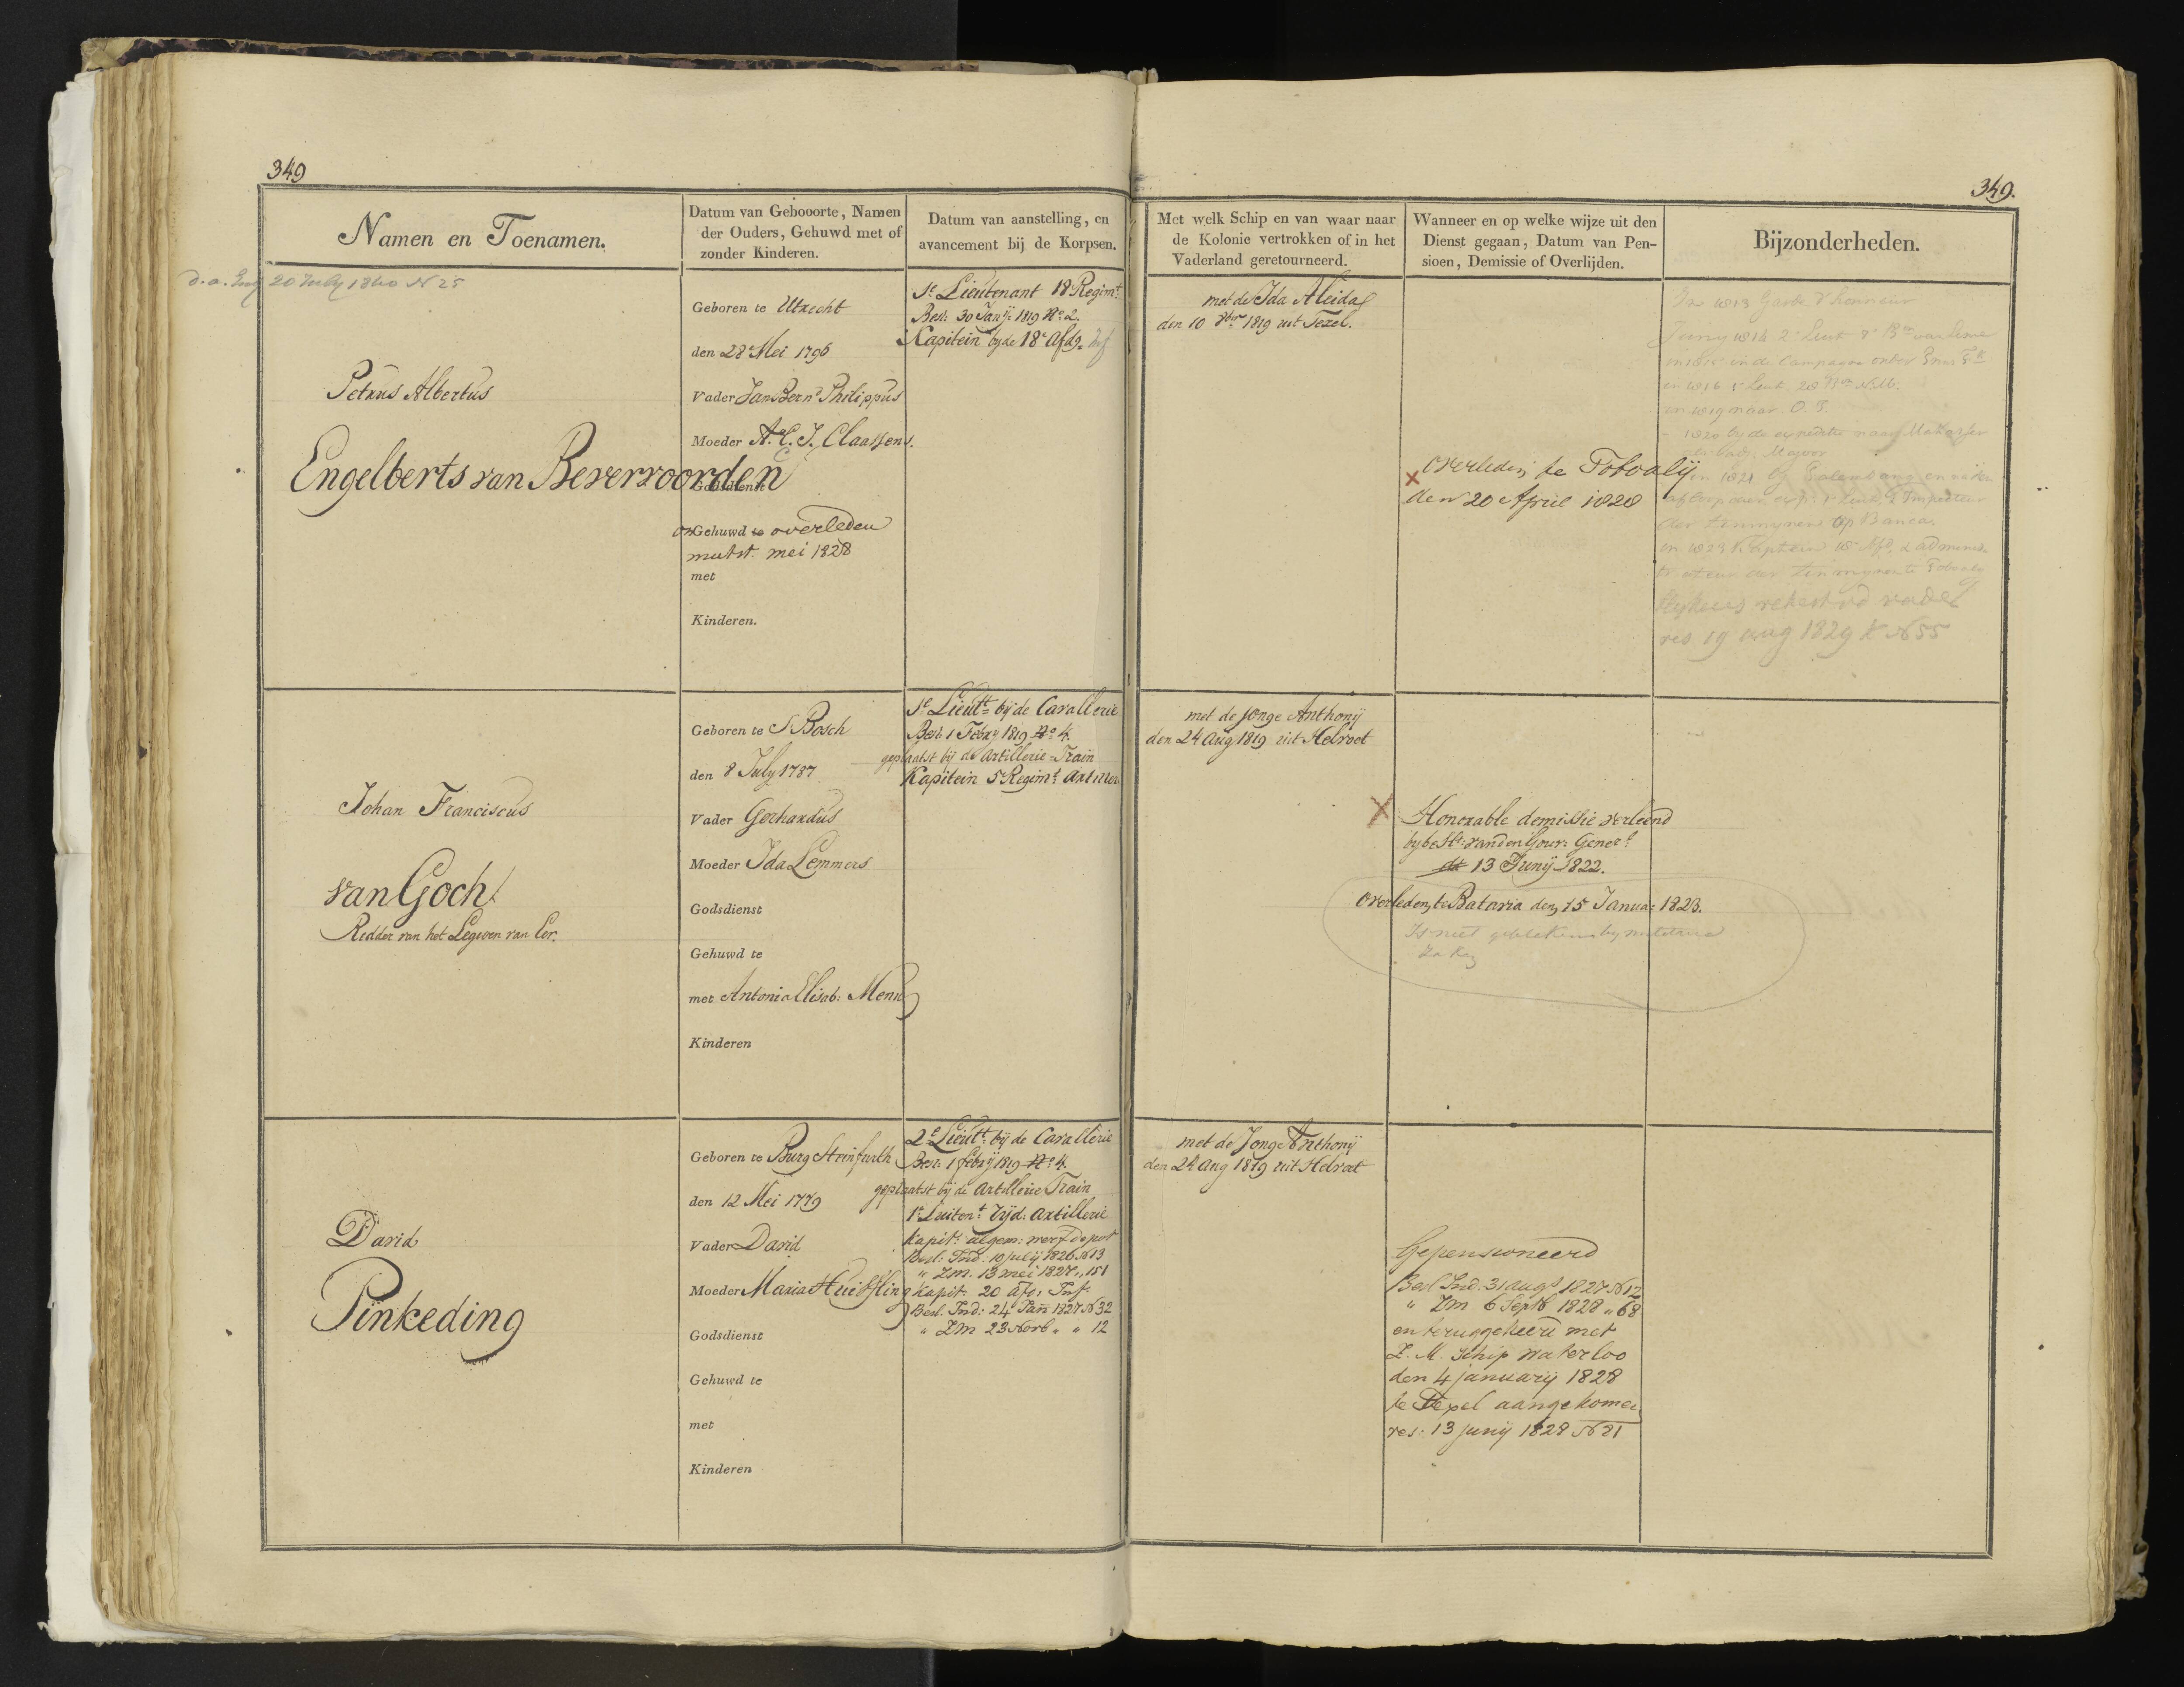 349
349.
Namen en Toenamen.
Datum van Gebooorte, Namen
der Ouders, Gehuwd met of
zonder Kinderen.
Datum van aanstelling, en
avancement bij de Korpsen.
Met welk Schip en van waar naar
de Kolonie vertrokken of in het
Vaderland geretourneerd.
Wanneer en op welke wijze uit den
Dienst gegaan, Datum van Pen-
sioen, Demissie of Overlijden.
Bijzonderheden.
20 July 1840 N 25
Petrus Albertus
Engelberts van Bevervoorden
Geboren te Utrecht
den 28 Mei 1796
Vader Jan Bern Philippus
Moeder A. C. J. Claassens.
Godsdienst
Gehuwd te overleden
mutst. mei 1828
met
Kinderen.
1e Lieutenant 18 Regimt
Besl: 30 Janij 1819 No 2.
Kapitein bij de 18e Afdg. Inf
met de Ida Aleida
den 10 8ber 1819 uit Texel.
x Overleden te Toboalij
den 20 April 1828
In 1813 Garde d'honneur
Junij 1814 2e Luit
in de Campagne
en 1816 1e Luit. 28
in 1819 naar O. I.
1820 bij de expeditie naar Makasser
Majoor
in 1821 Palembang en
Inspecteur
der tinmijnen op Banca.
in 1823 Kapitein 18e Afd. &
der tinmijnen te
rekest vd vader
res 19 aug 1829 N 55
Johan Franciscus
van Goch
Ridder van het Legioen van Eer.
Geboren te S Bosch
den 8 July 1787
Vader Gerhardus
Moeder Ida Lemmers
Godsdienst
Gehuwd te
met Antonia Elisab: Menn
Kinderen
1e Lieutt bij de Cavallerie
Besl 1 Febry 1819 No 4.
geplaatst bij de Artillerie-Train
Kapitein 5 Regimt Artiller
met de Jonge Anthonij
den 24 Aug 1819 uit Helvoet
x Honorable demissie verleend
by beslt: van den Gouv: Generl
dd 13 Junij 1822.
Overleden te Batavia den 15 Januar 1823.
Is niet gebleken by militaire
Zaken
David
Pinkeding
Geboren te Burg Steinfurth
den 12 Mei 1779
Vader David
Moeder Maria
Godsdienst
Gehuwd te
met
Kinderen
2e Lieutt: bij de Cavallerie
Besl: 1 Febrij 1819 No 4.
geplaatst bij de Artillerie Train
1e Luitent: Rijd: Artillerie
Kapitn: algem: werfdepot
Besl: Ind. 10 julij 1826 N 13
" ZM. 13 mei 1827 " 151
Kapit. 20 Afd: Inf:
Besl. Ind: 24 Jan 1827 N 32
" ZM 23 Novb " " 12
met de Jonge Anthonij
den 24 Aug 1819 uit Helvoet
Gepensioneerd
Besl Ind: 31 augs 1827 N 12
" ZM 6 Septb 1828 " 68
en teruggekeerd met
Z. M. schip Waterloo
den 4 januarij 1828
te Texel aangekomen
res: 13 junij 1828 N 21